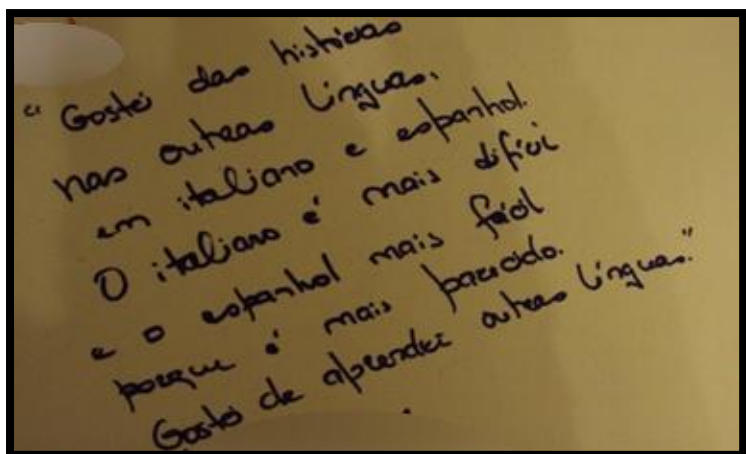 "Gostei das histórias
nas outras línguas,
em italiano e espanhol.
O italiano é mais difícil
e o espanhol mais fácil
porque é mais parecido.
Gostei de aprender outras línguas."